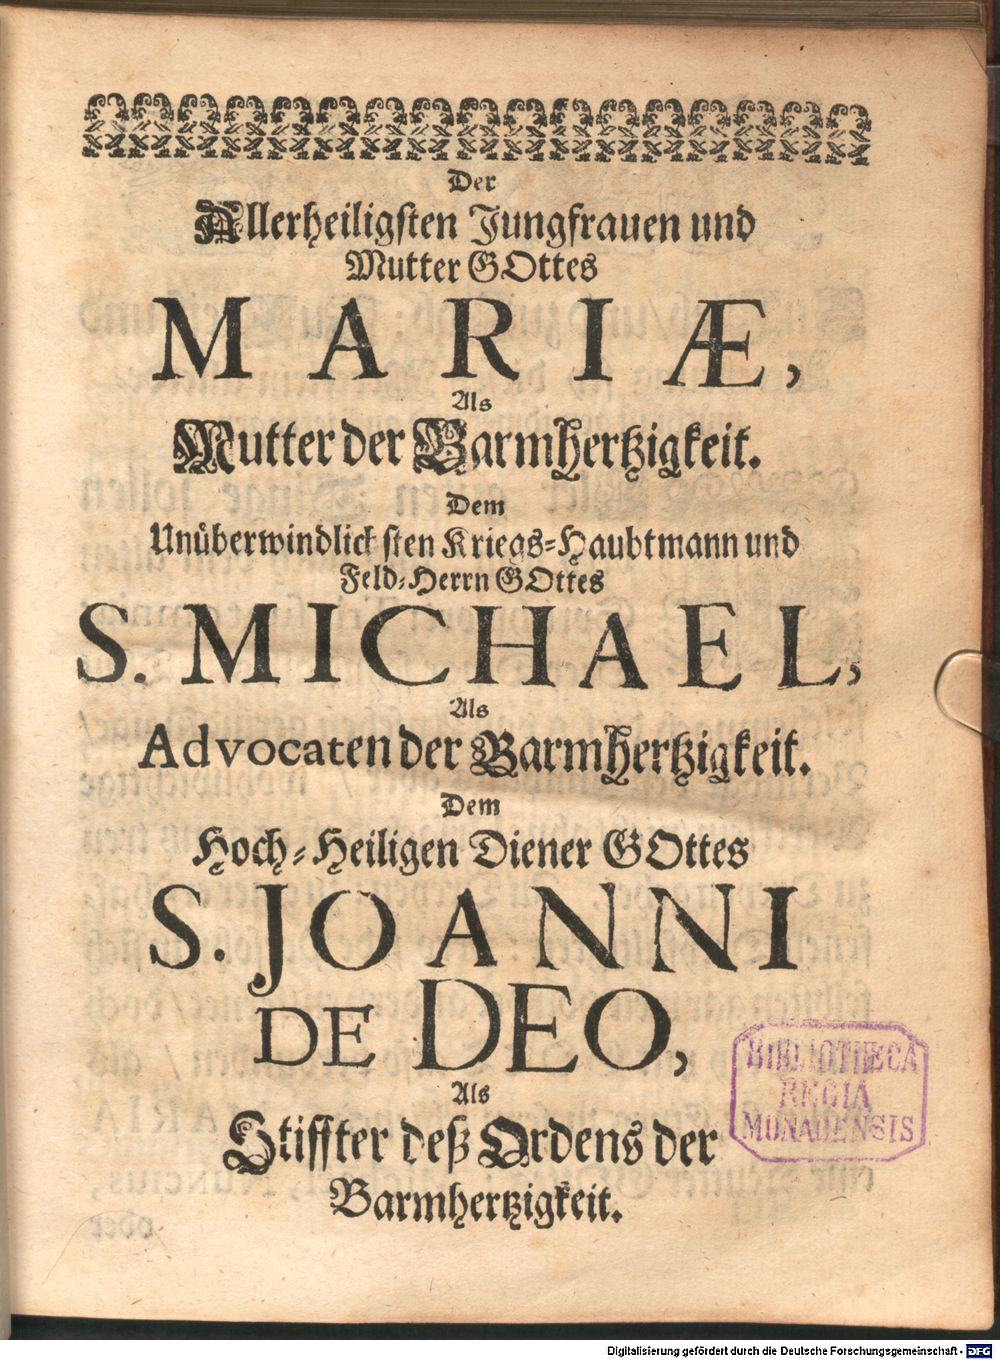 Der
Allerheiligsten Jungfrauen und
Mutter GOttes
MARIÆ,
Als
Mutter der Barmhertzigkeit.
Dem
Unüberwindlichsten Kriegs-Haubtmann und
Feld-Herrn GOttes
S. MICHAEL,
Als
Advocaten der Barmhertzigkeit.
Dem
Hoch-Heiligen Diener GOttes
S. JOANNI
DE DEO,
Als
Stiffter deß Ordens der
Barmhertzigkeit.
BIBLIOTHECA
REGIA
MONACENSIS
Digitalisierung gefördert durch die Deutsche Forschungsgemeinschaft - DFG